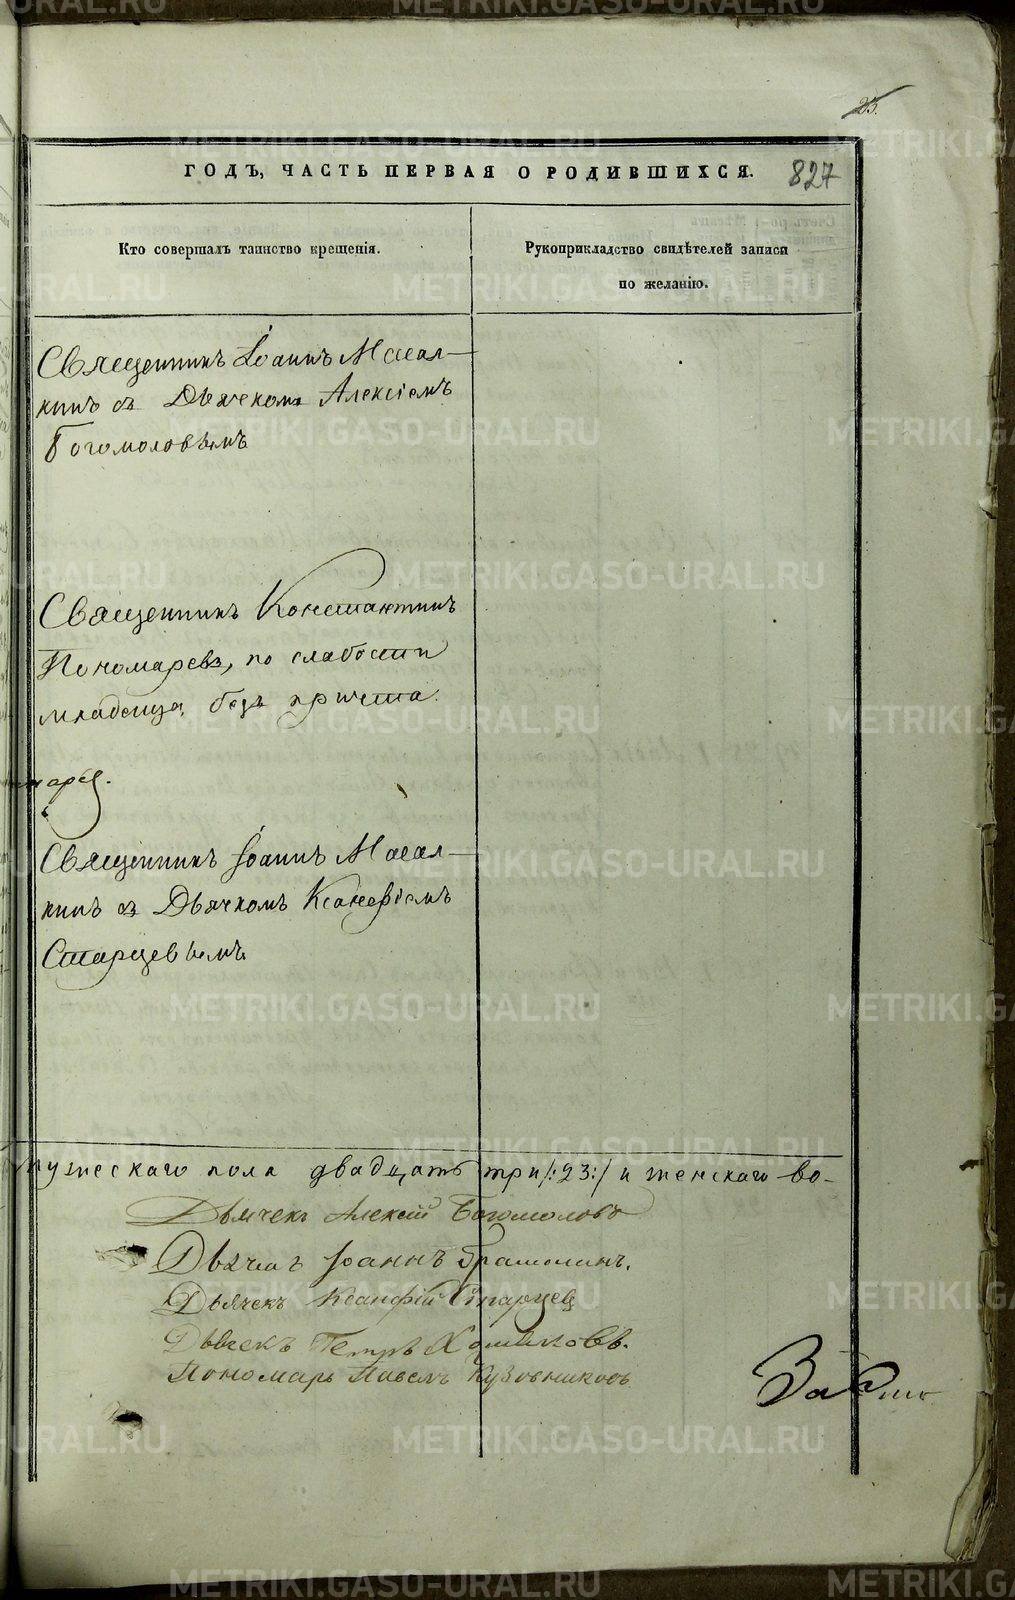 23.
ГОДЪ, ЧАСТЬ ПЕРВАЯ О РОДИВШИХСЯ.
827
Кто совершалъ таинство крещенія.
Рукоприкладство свидѣтелей записи
по желанію.
Священникъ Іоаннъ Масал-
кинъ съ Дьячкомъ Алексіемъ
Богомоловымъ
Священникъ Константинъ
Пономаревъ, по слабости
младенца, безъ причта.
Священникъ Іоаннъ Масал-
кинъ съ Дьячкомъ Ксанфіемъ
Старцевымъ
мужескаго пола двадцать три /:23:/ и женскаго во-
Дьячекъ Алексій Богомоловъ
Дьячекъ Іоаннъ
Дьячекъ Ксанфій Старцев
Дьячекъ Петръ
Пономарь Павелъ Кузовниковъ
METRIKI.GASO-URAL.RU